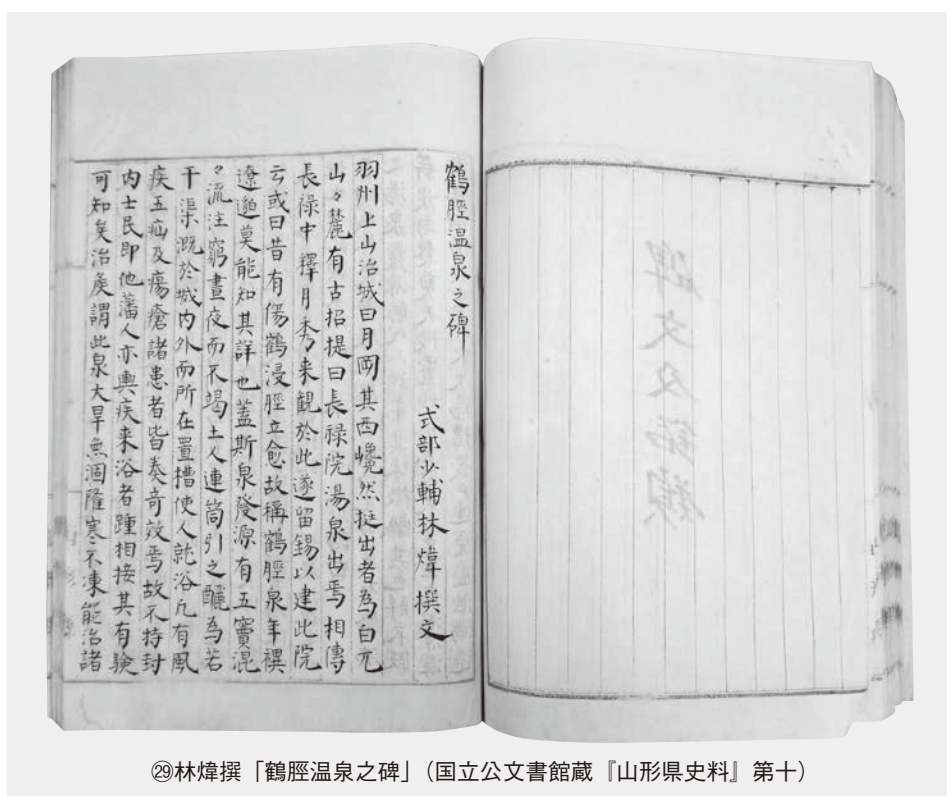 鶴脛温泉之碑
式部少輔林煒撰文
羽州上山治城曰月岡其西巉然挺出者為白兀
山々麓有古招提曰長禄院湯泉出焉相傳
長禄中釋月秀来観於此遂留錫以建此院
云或曰昔有傷鶴浸脛立愈故稱鶴脛泉年禩
遼邈莫能知其詳也蓋斯泉發源有五竇混
々流注窮晝夜而不竭土人連筒引之釃為若
干渠溉於城内外而所在置槽使人就浴凡有風
疾五疝及瘍瘡諸患者皆奏奇效焉故不持封
内士民即他藩人亦輿疾来浴者踵相接其有験
可知矣治矦謂此泉大旱無涸隆寒不凍能治諸
碑文及銘類
㉙林煒撰「鶴脛温泉之碑」（国立公文書館蔵『山形県史料』第十）